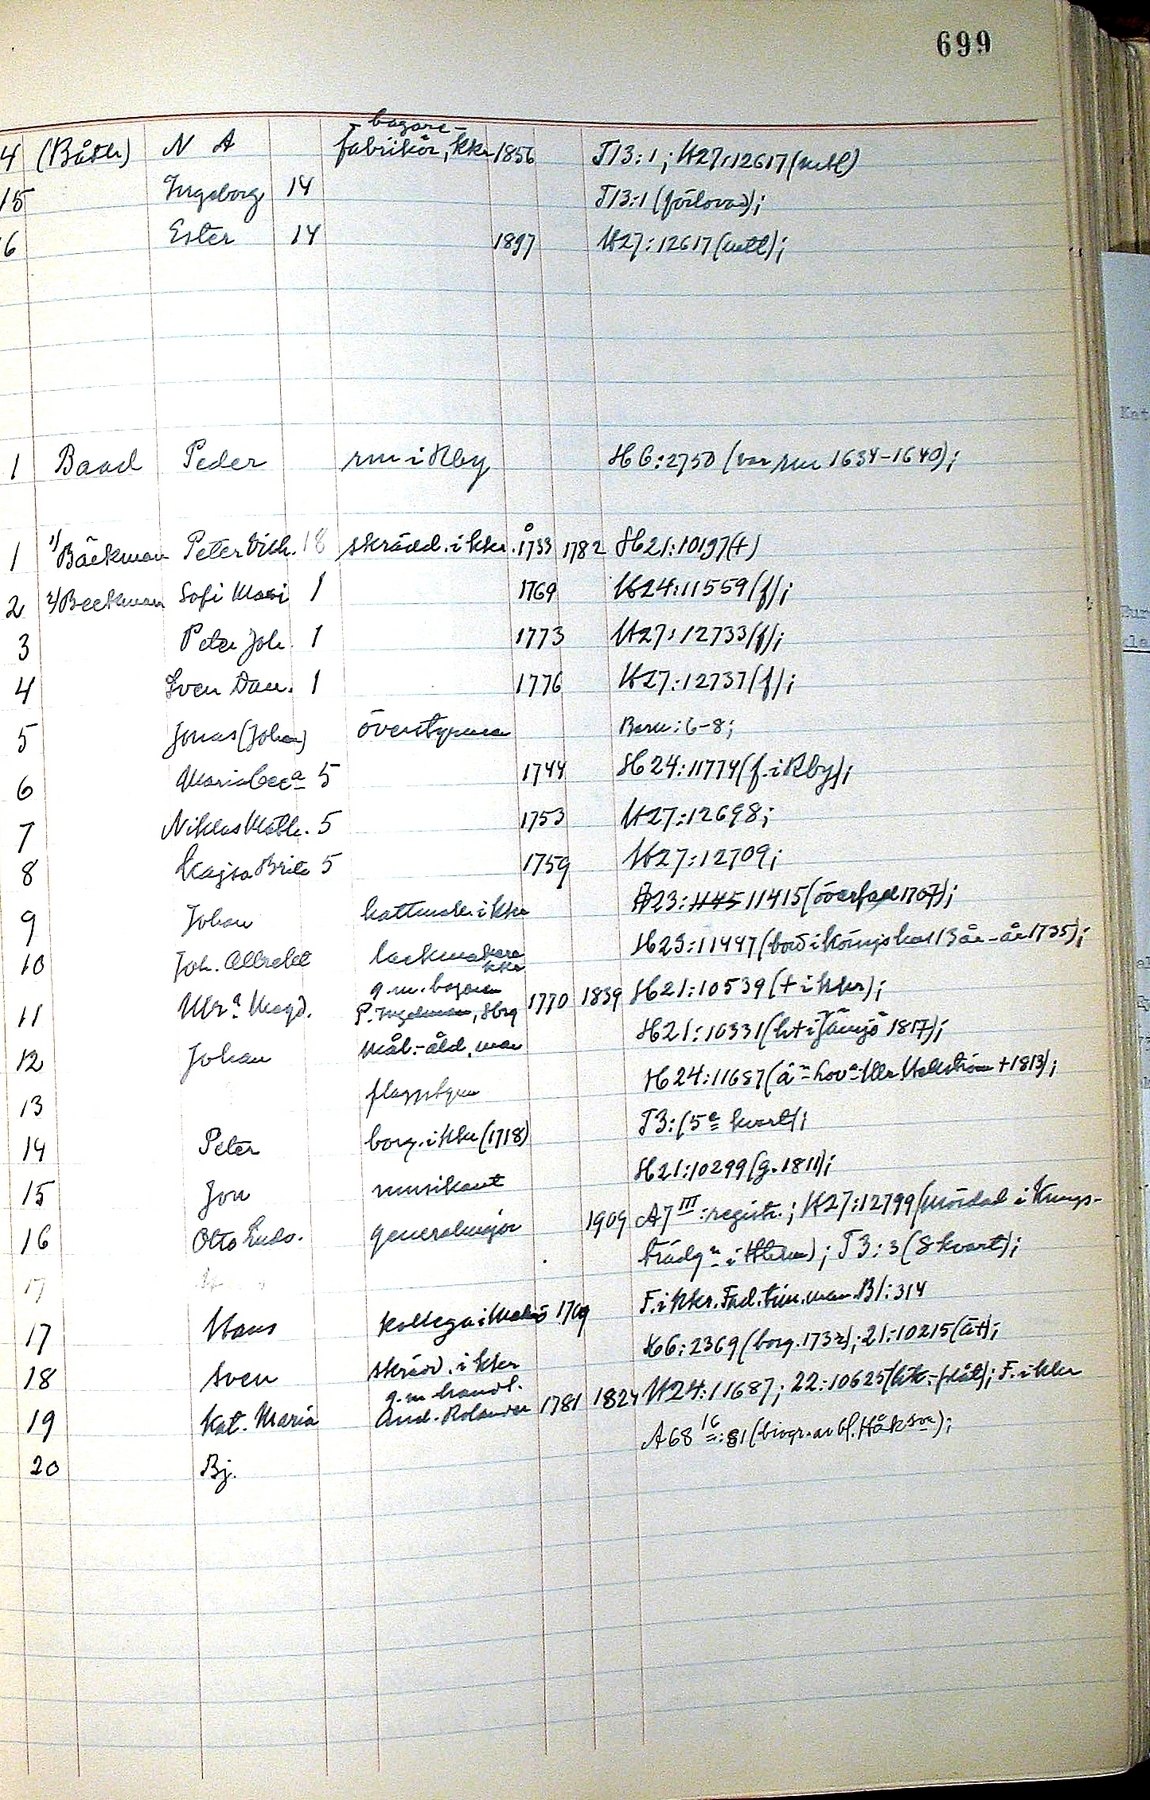 699
4 (Bååth) N A bagare-
fabrikör, kkr 1856 T13:1; H27:12617 (notl)
15 Ingeborg 14 T13:1 (förlovad);
6 Ester 14 1897 H27:12617 (notl);
1 Baad Peder rm i Rby H6:2750 (var rm 1634-1640);
1 1/ Bäckman Peter Vilh. 18 skrädd. i kkr. 1733 1782 H21:10197 (+)
2 2/ Beckman Sofi Mari 1 1769 H24:11559 (f);
3 Peter Joh. 1 1773 H27:12733 (f);
4 Sven Dan. 1 1776 H27:12737 (f);
5 Jonas (Johan) överstyrman 6-8;
6 Maria Cec:a 5 1744 H24:11774 (f. i Rby);
7 Niklas Math. 5 1753 H27:12698;
8 Kajsa Brita 5 1759 H27:12709;
9 Johan hattmak. i kkr H23: 11415 (1707);
10 Joh. Albrekt kkr H23:11447 (13 år - år 1735);
11 Ulr:a Magd. g.m. bagaren
P. Ingelman, Hbg 1770 1839 H21:10539 (+ i kkr);
12 Johan mål.-åld.man H21:10331 (i Jämjö 1817);
13 flaggstyrm H24:11687 (+ 1813);
14 Peter borg. i kkr (1718) T3: (5:e kvart);
15 Jon musikant H21:10299 (g. 1811);
16 Otto Ludv. generalmajor 1909 A7 III: registr.; H27:12799 (mördad i Kungs-
trädg:n i Sthlm); T3:3 (8 kvart);
17
17 Hans kollega i Malmö 1709 F. i kkr. B1:314
18 Sven skräd. i kkr H6:2369 (borg. 1732); 21:10215 (ä+);
19 Kat. Maria g.m. handl.
And. Rolander 1781 1824 H24:11687; 22:10625; F. i kkr
20 Bj. A68 16:81 (biogr. av);